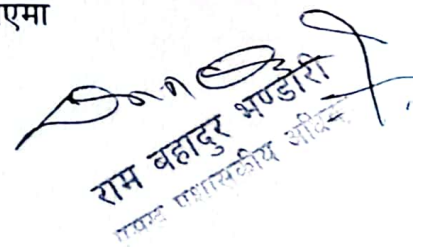 एमा
राम बहादुर भण्डारी
प्रमुख प्रशासकीय अधिकृत